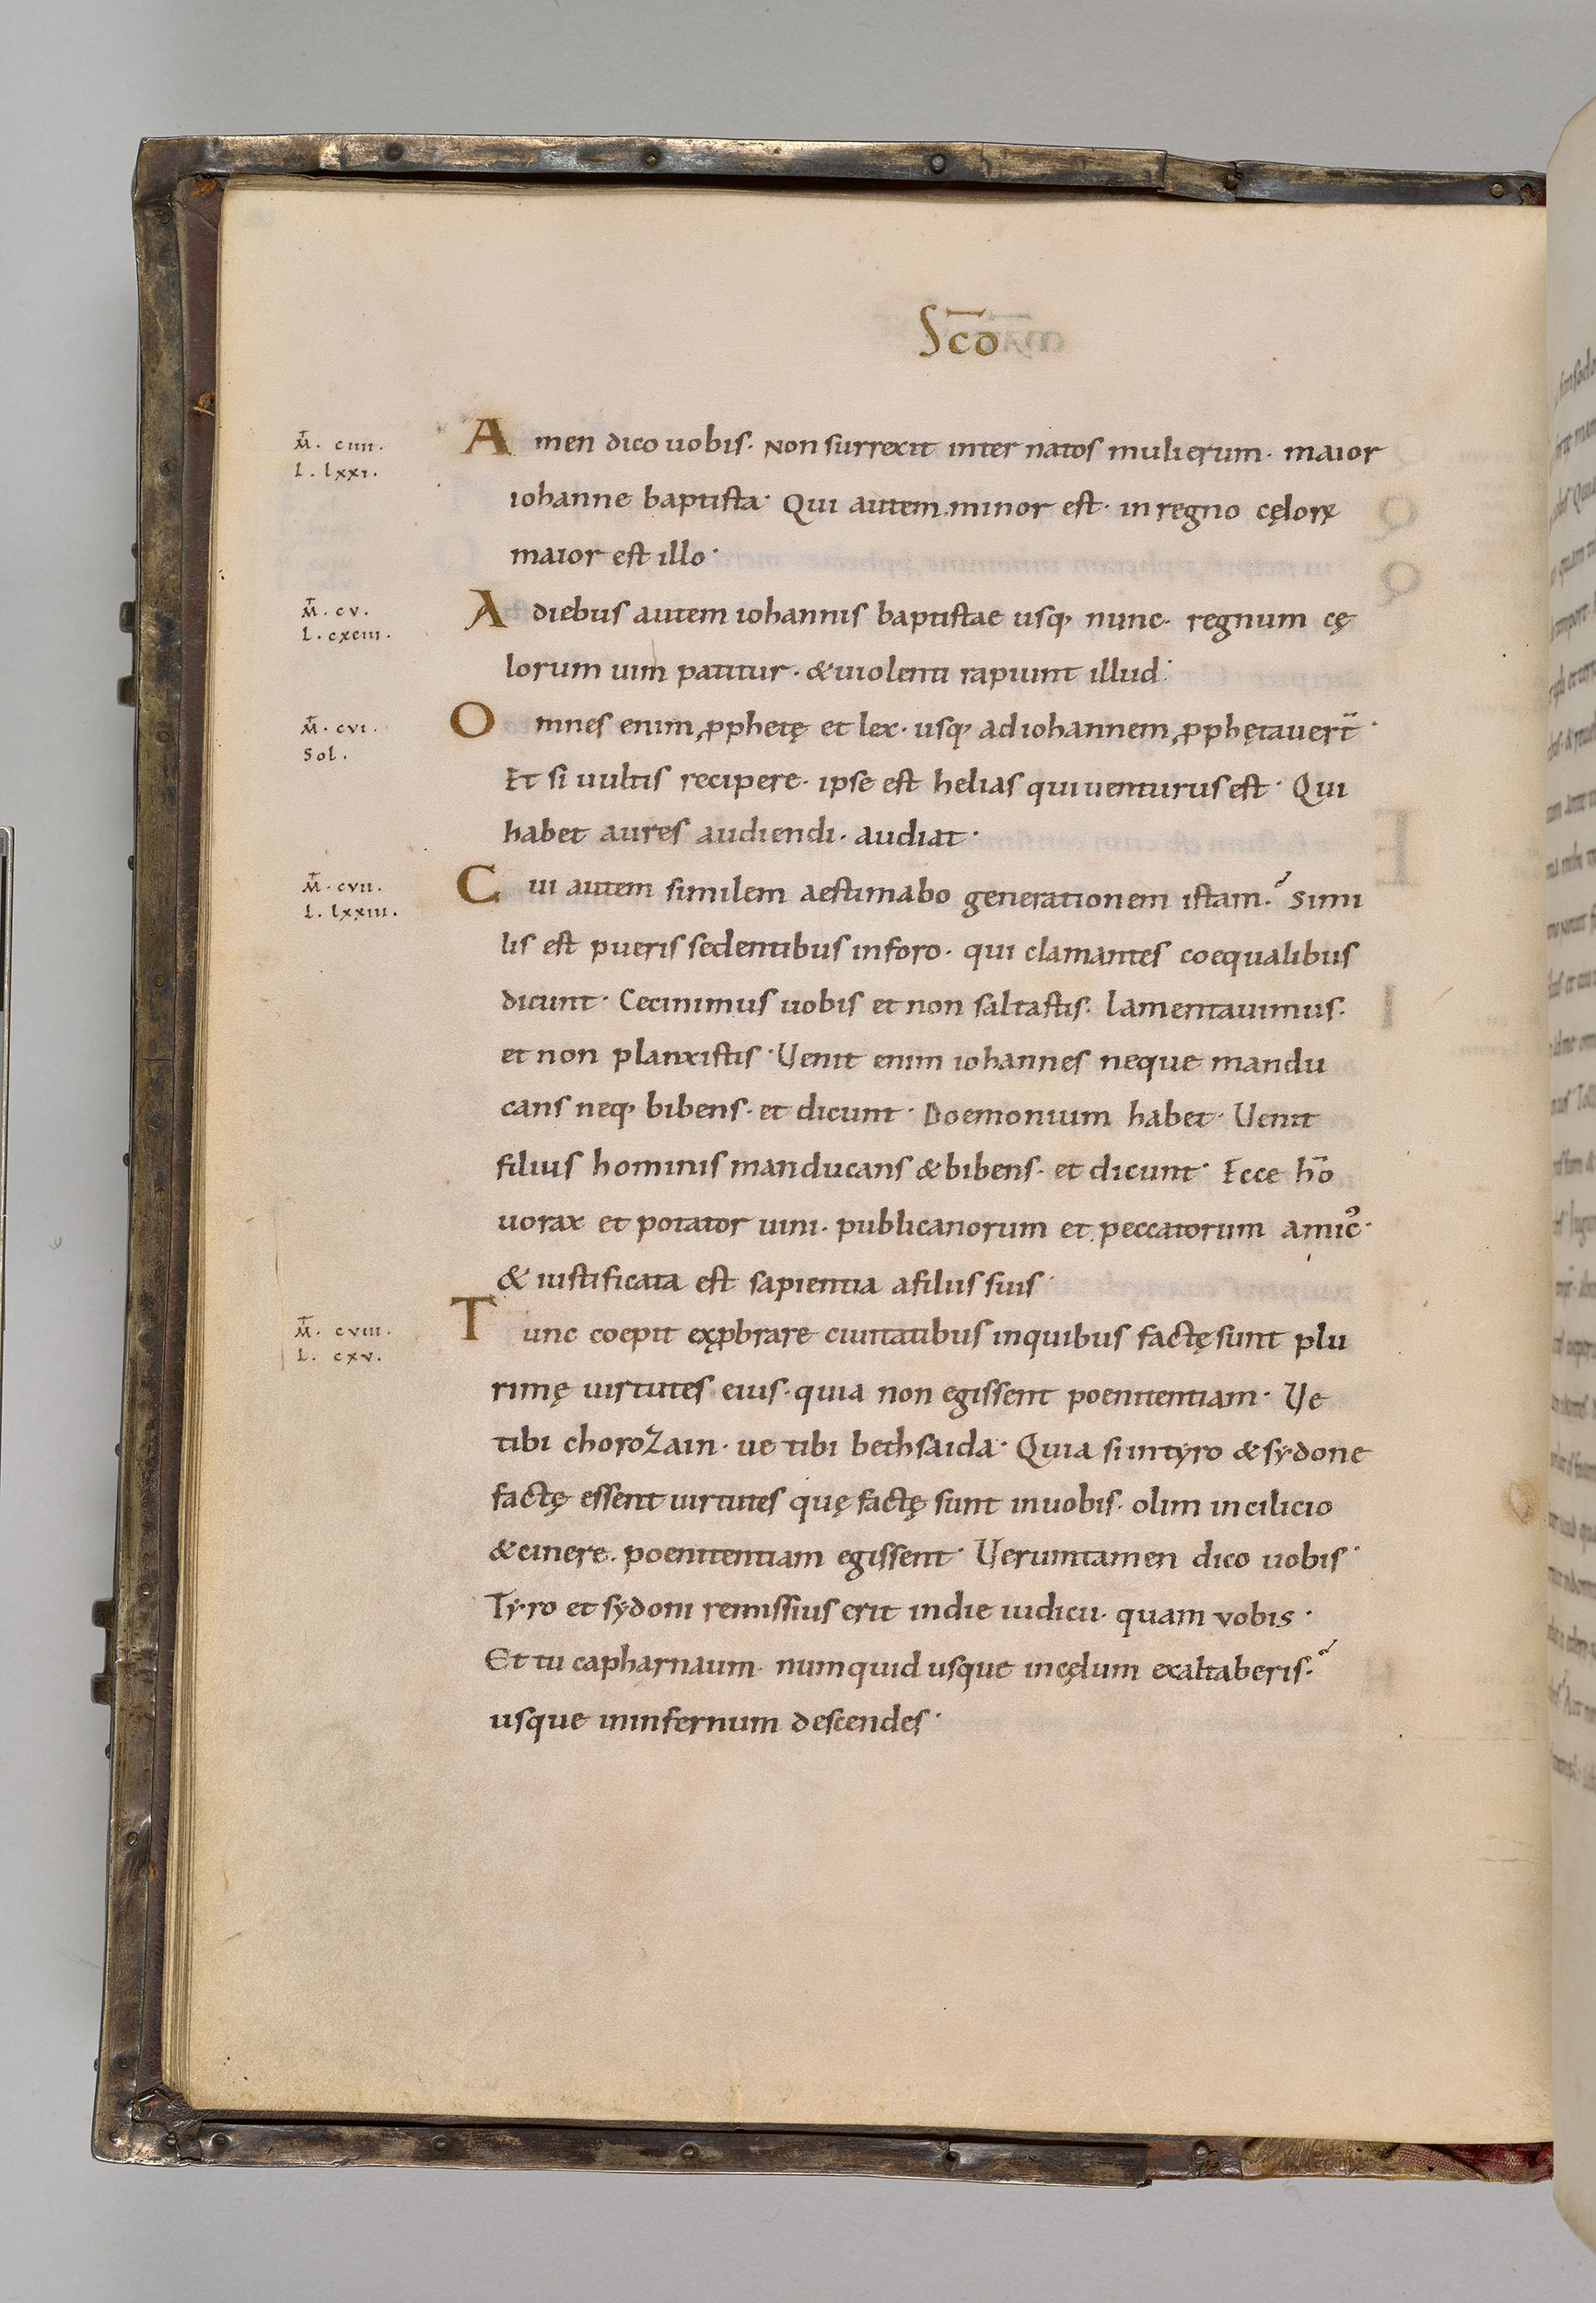 Sc̄o
M̄. ciiii.
L. lxxi.
Amen dico uobis· Non surrexit inter natos mulierum· maior
iohanne baptista· Qui autem minor est· in regno cęloꝝ
maior est illo·
M̄. cv.
L. cxciii.
A diebus autem iohannis baptistae usq; nunc· regnum cę
lorum uim patitur· & uiolenti rapiunt illud·
M̄. cvi.
Sol.
Omnes enim ꝓphetę et lex· usq; ad iohannem ꝓphętauer̄t·
Et si uultis recipere· ipse est helias qui uenturus est· Qui
habet aures audiendi· audiat·
M̄. cvii.
L. lxxiii.
Cui autem similem aestimabo generationem istam? Simi
lis est pueris sedentibus in foro· qui clamantes coequalibus
dicunt· Cecinimus uobis et non saltastis· lamentauimus·
et non planxistis· Uenit enim iohannes neque mandu
cans neq; bibens· et dicunt· Doemonium habet· Uenit
filius hominis manducans & bibens· et dicunt· Ecce hō
uorax et potator uini· publicanorum et peccatorum amicꝰ·
& iustificata est sapientia a filiis suis·
M̄. cviii.
L. cxv.
Tunc coepit exꝓbrare ciuitatibus in quibus factę sunt plu
rimę uirtutes eius· quia non egissent poenitentiam· Ue
tibi chorozain· ue tibi bethsaida· Quia si in tyro & sydone
factę essent uirtutes quę factę sunt in uobis· olim in cilicio
& cinere· poenitentiam egissent· Uerumtamen dico uobis·
Tyro et sydoni remissius erit in die iudicii· quam vobis·
Et tu capharnaum· numquid usque in cęlum exaltaberis?
usque in infernum descendes·